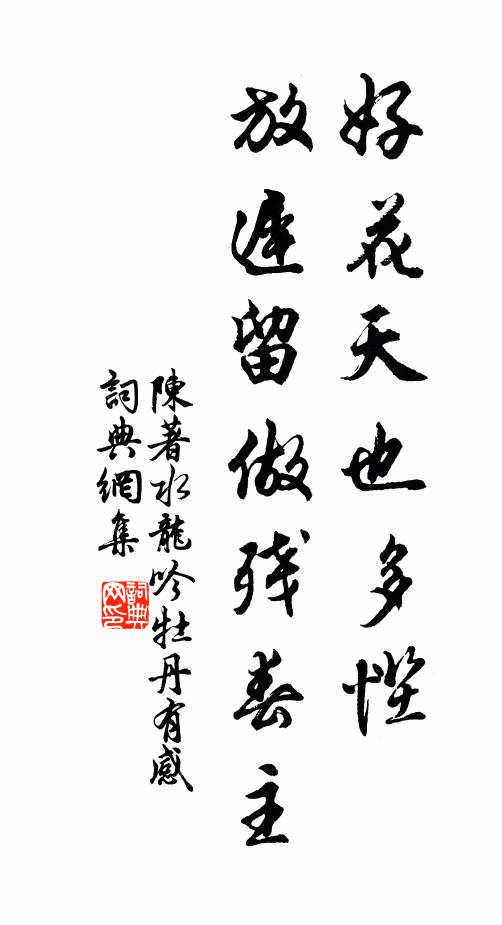 好花天也多悭
放遲留做残春主
陳著水龍吟牡丹有感
詞典網集
詞典
网印